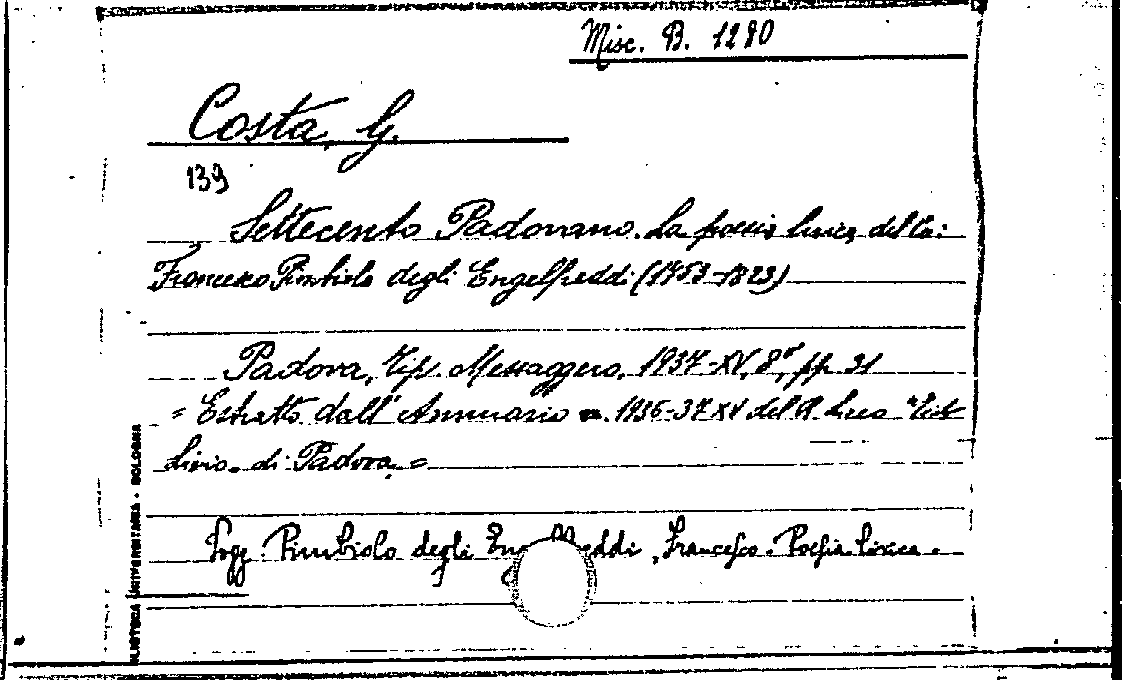 Misc. B. 1280
Costa, G.
139
Settecento Padovano. La poesia lirica del
Francesco Pimbiolo degli Engelfreddi (1753-1823)
Padova, Tip. Messaggero, 1937-XV, 8°, pp 31
= Estratto dall' Annuario 1936-37 XV del R. Liceo "Tito
Livio" di Padova =
Sogg. Pimbiolo degli Engelfreddi, Francesco - Poesia lirica -
BIBLIOTECA UNIVERSITARIA - BOLOGNA